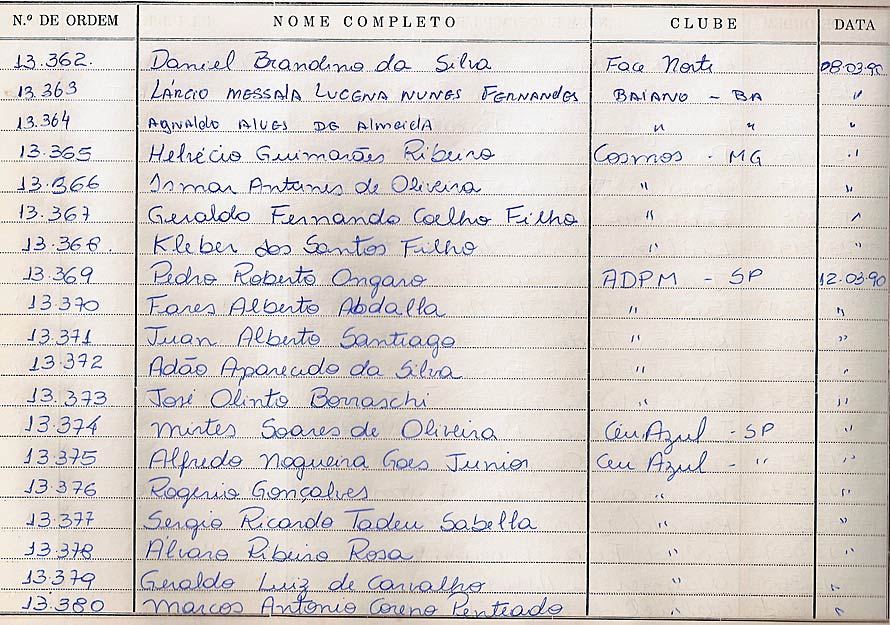 N.º DE ORDEM NOME COMPLETO CLUBE DATA
13.362. Daniel Brandino da Silva Face Norte 08.03.90
13.363 LÁRCIO MESSALA LUCENA NUNES FERNANDES BAIANO - BA "
13.364 AGNALDO ALVES DE ALMEIDA " " "
13.365 Helvécio Guimarães Ribeiro Cosmos - MG "
13.366 Ismar Antunes de Oliveira " "
13.367 Geraldo Fernando Coelho Filho " "
13.368. Kleber dos Santos Filho " "
13.369 Pedro Roberto Ongaro ADPM - SP 12.03.90
13.370 Fares Alberto Abdalla " "
13.371 Juan Alberto Santiago " "
13.372 Adão Aparecido da Silva " "
13.373 José Olinto Borraschi " "
13.374 Mirtes Soares de Oliveira Céu Azul - SP "
13.375 Alfredo Nogueira Goes Junior Ceu Azul - " "
13.376 Rogerio Gonçalves " "
13.377 Sergio Ricardo Tadeu Sabella " "
13.378 Alvaro Ribeiro Rosa " "
13.379 Geraldo Luiz de Carvalho " "
13.380 Marcos Antonio Penteado " "